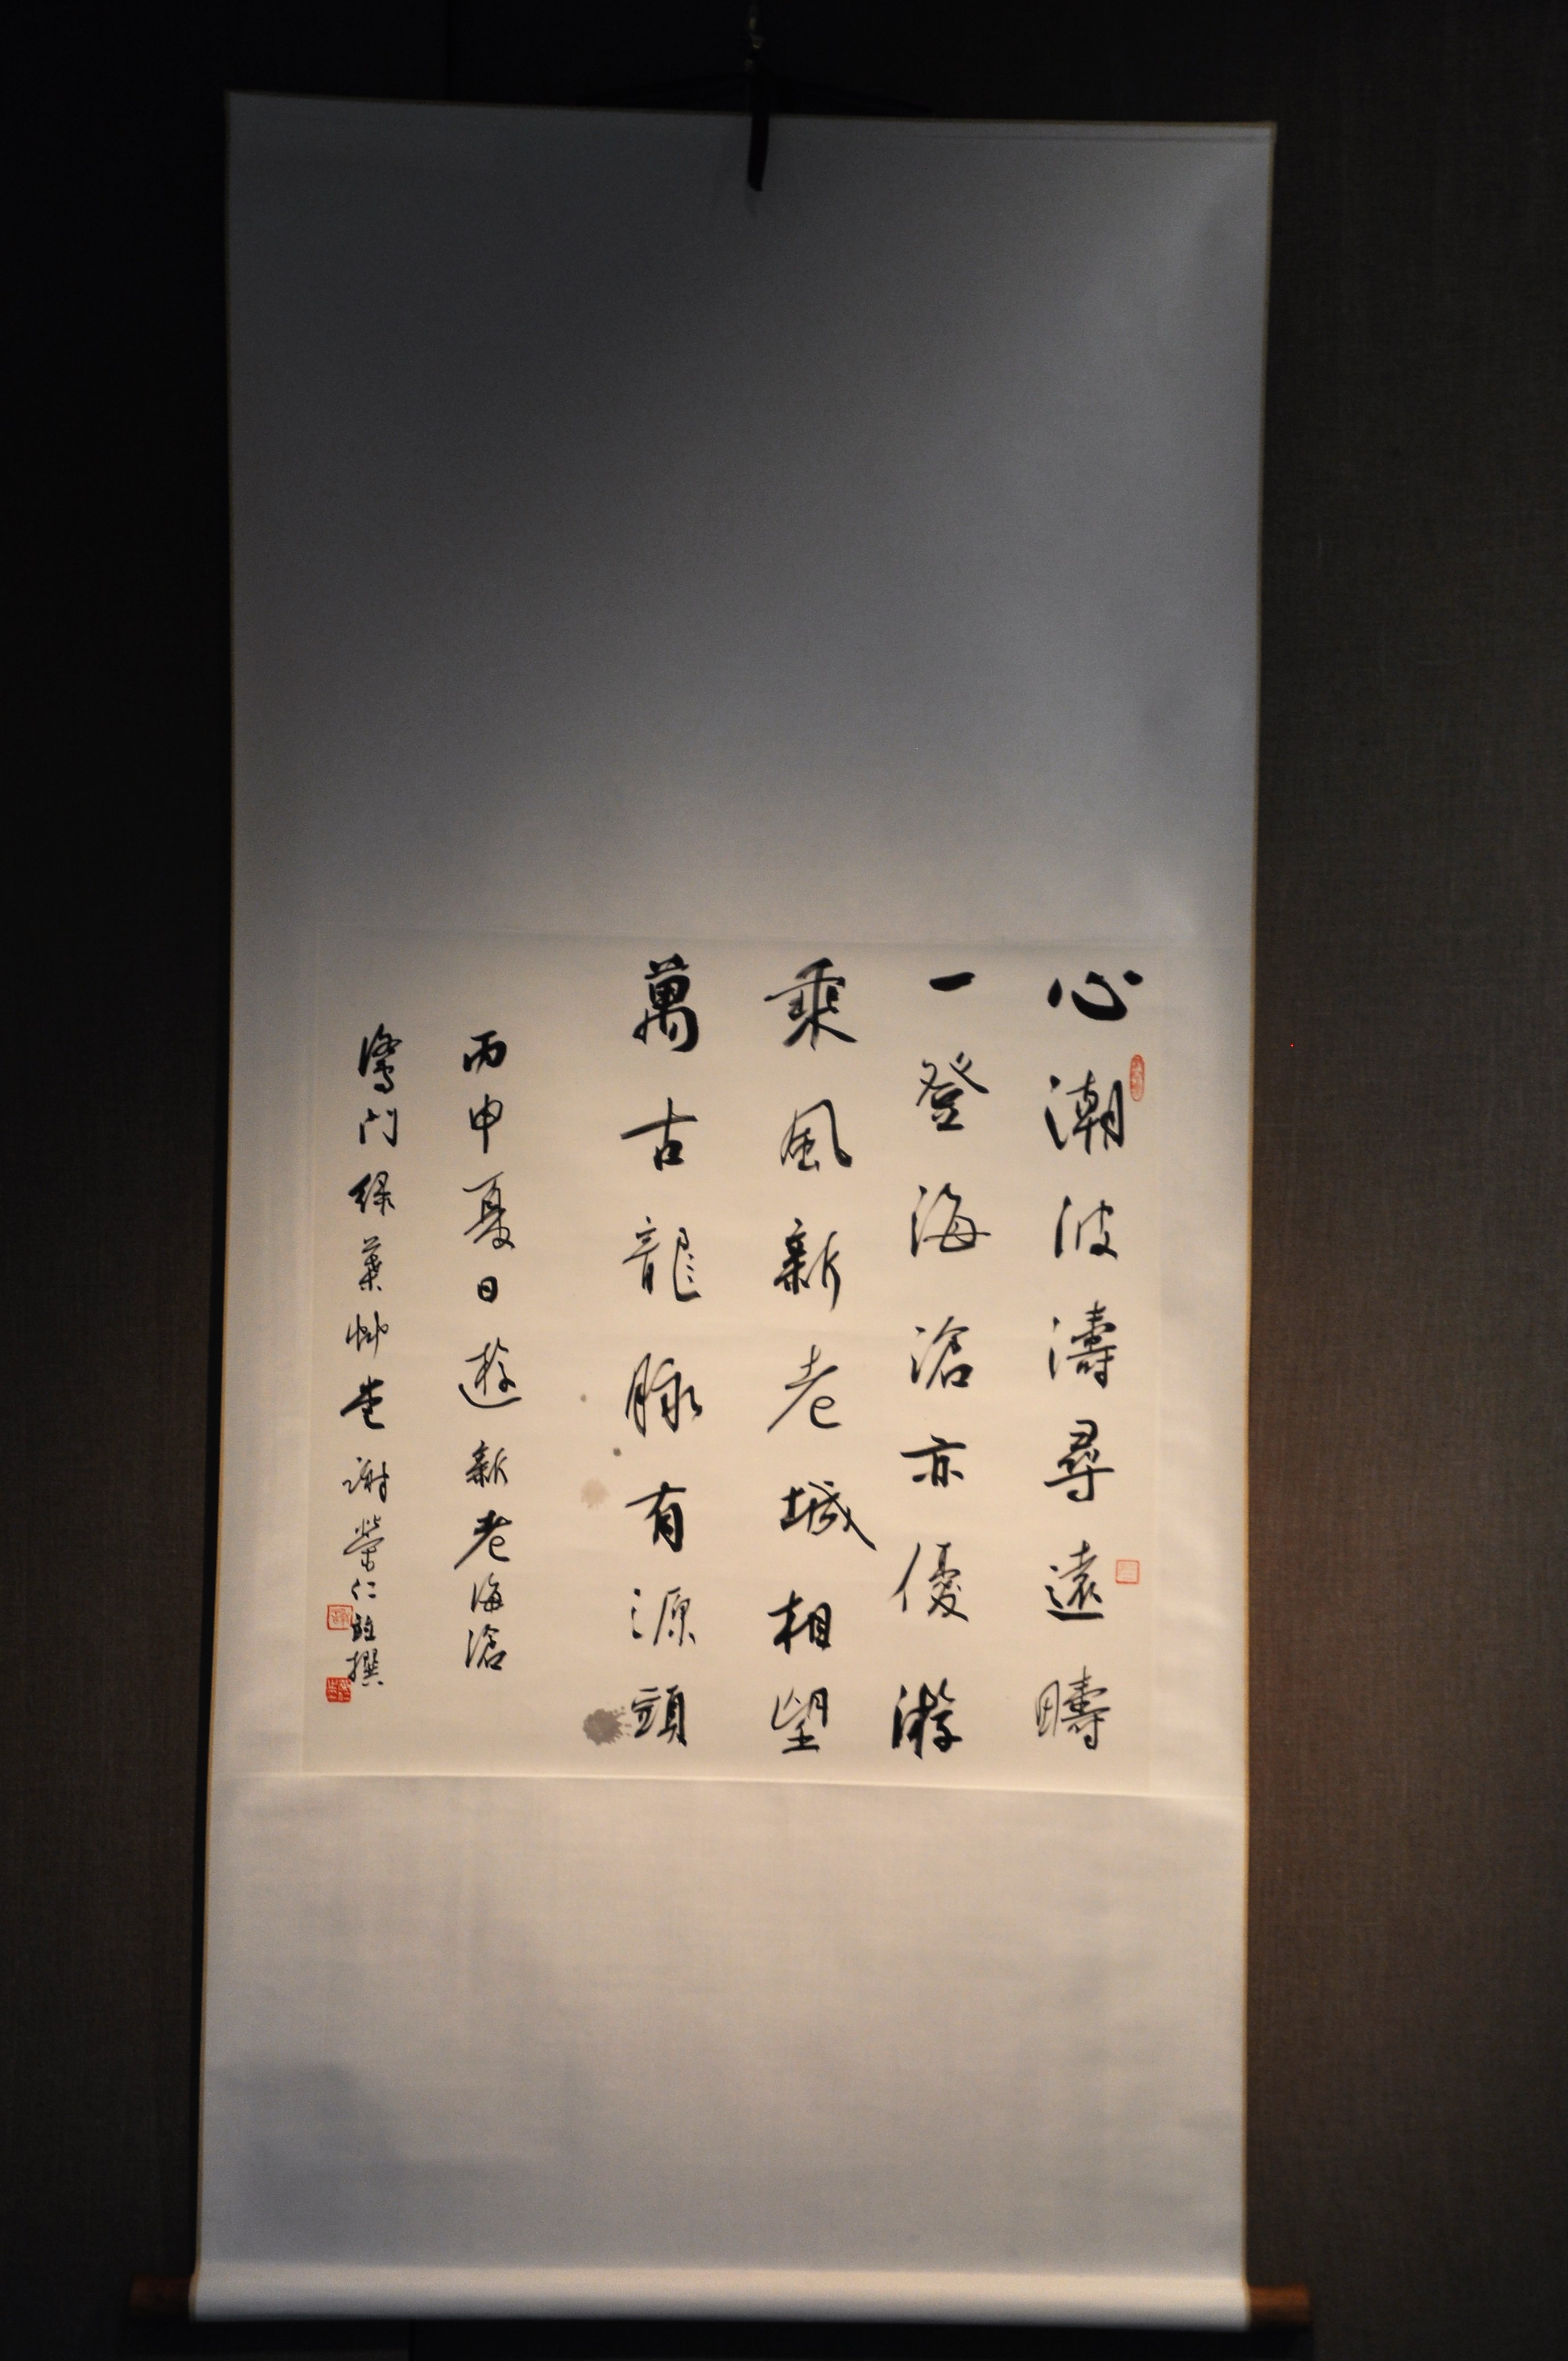 心潮波濤尋遠疇
一登海滄亦優游
乘風新老城相望
萬古龍脉有源頭
丙申夏日遊新老海滄
鷺門綠葉艸堂謝榮仁撰